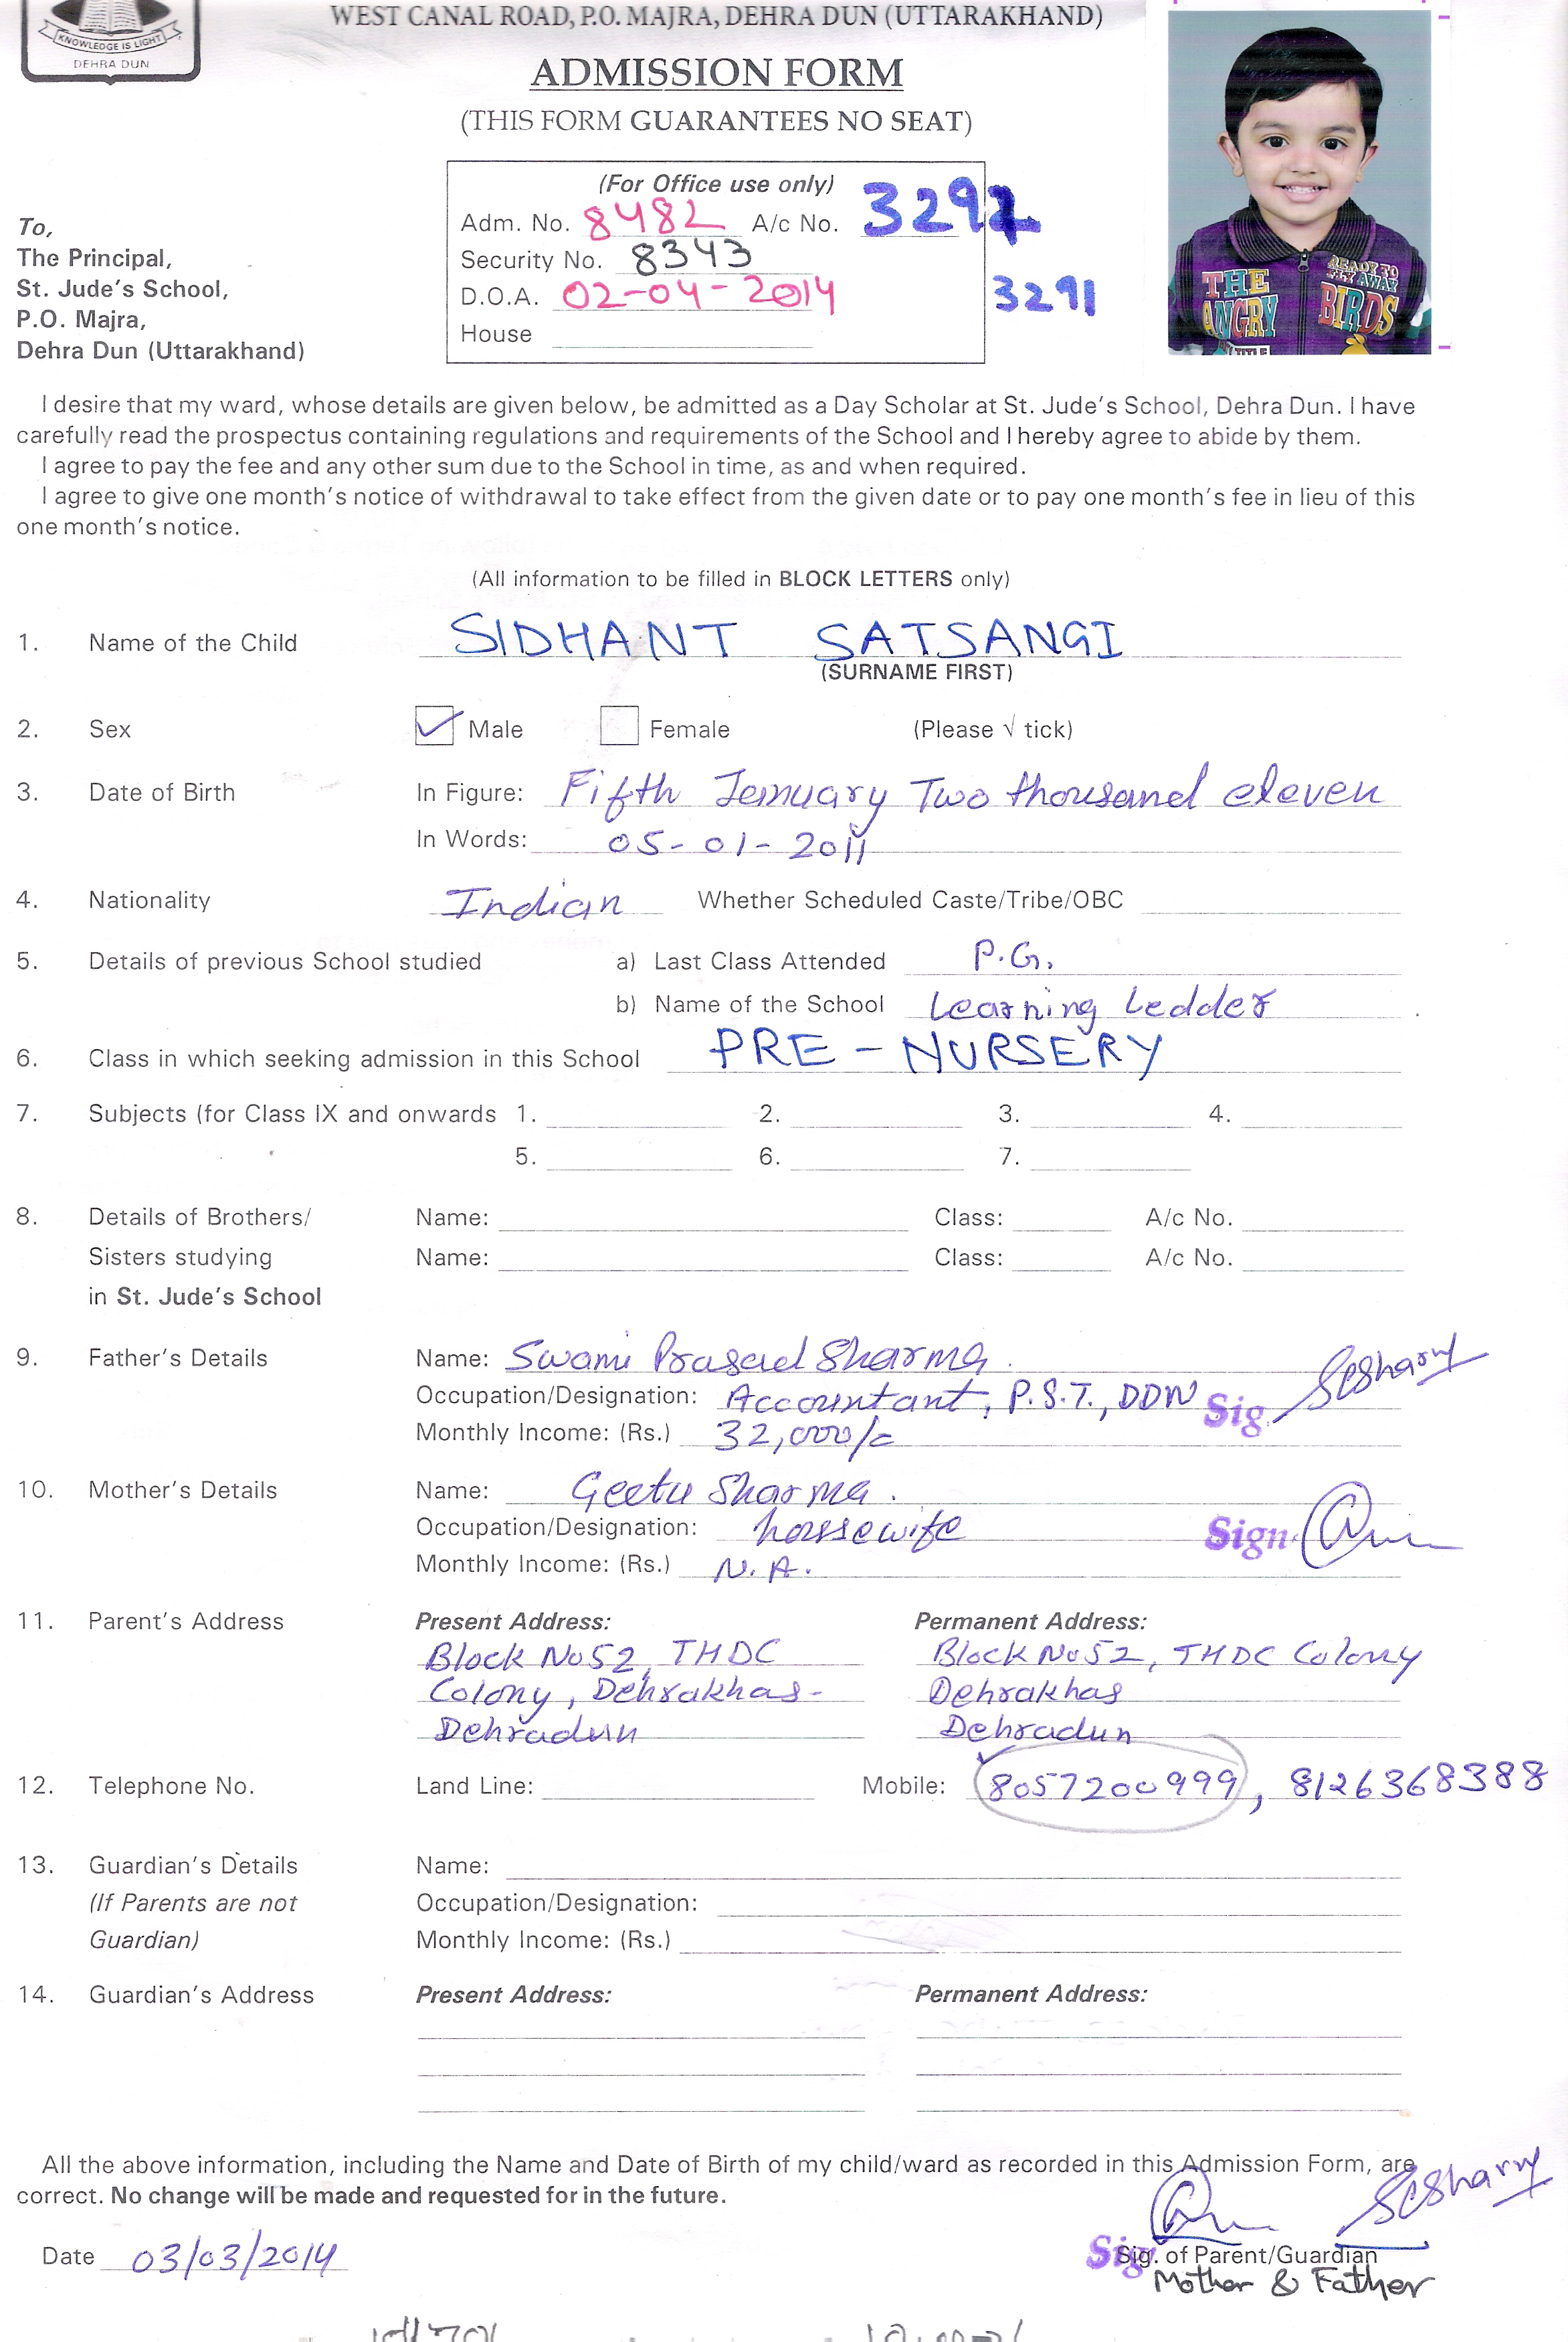 KNOWLEDGE IS LIGHT
DEHRA DUN
WEST CANAL ROAD, P.O. MAJRA, DEHRA DUN (UTTARAKHAND)
ADMISSION FORM
(THIS FORM GUARANTEES NO SEAT)
(For Office use only)
Adm. No. 8482 A/c No. 3297
Security No. 8343
D.O.A. 02-04-2014 3291
House
THE ANGRY BIRDS
READY TO FLY AWAY
To,
The Principal,
St. Jude's School,
P.O. Majra,
Dehra Dun (Uttarakhand)
I desire that my ward, whose details are given below, be admitted as a Day Scholar at St. Jude's School, Dehra Dun. I have
carefully read the prospectus containing regulations and requirements of the School and I hereby agree to abide by them.
I agree to pay the fee and any other sum due to the School in time, as and when required.
I agree to give one month's notice of withdrawal to take effect from the given date or to pay one month's fee in lieu of this
one month's notice.
(All information to be filled in BLOCK LETTERS only)
1. Name of the Child SIDHANT SATSANGI
(SURNAME FIRST)
2. Sex Male Female (Please √ tick)
3. Date of Birth In Figure: Fifth Jenuary Two thousand eleven
In Words: 05-01-2011
4. Nationality Indian Whether Scheduled Caste/Tribe/OBC
5. Details of previous School studied a) Last Class Attended P.G.
b) Name of the School Learning Ledder
6. Class in which seeking admission in this School PRE-NURSERY
7. Subjects (for Class IX and onwards 1. 2. 3. 4.
5. 6. 7.
8. Details of Brothers/ Name: Class: A/c No.
Sisters studying Name: Class: A/c No.
in St. Jude's School
9. Father's Details Name: Swami Prasad Sharma.
Occupation/Designation: Accountant, P.S.T., DDN Sig.
Monthly Income: (Rs.) 32,000/=
10. Mother's Details Name: Geeta Sharma.
Occupation/Designation: housewife Sign.
Monthly Income: (Rs.) N.A.
11. Parent's Address Present Address: Permanent Address:
Block No 52, THDC Block No 52, THDC Colony
Colony, Dehrakhas- Dehrakhas
Dehradun Dehradun
12. Telephone No. Land Line: Mobile: 8057200999, 8126368388
13. Guardian's Details Name:
(If Parents are not Occupation/Designation:
Guardian) Monthly Income: (Rs.)
14. Guardian's Address Present Address: Permanent Address:
All the above information, including the Name and Date of Birth of my child/ward as recorded in this Admission Form, are
correct. No change will be made and requested for in the future.
Date 03/03/2014 Sig. of Parent/Guardian
Mother & Father